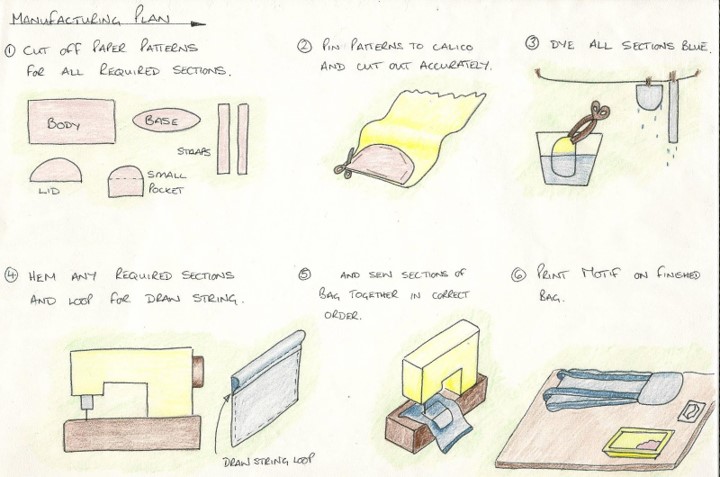 MANUFACTURING PLAN
① CUT OFF PAPER PATTERNS
FOR ALL REQUIRED SECTIONS.
BODY
BASE
STRAPS
LID
SMALL
POCKET
② PIN PATTERNS TO CALICO
AND CUT OUT ACCURATELY.
③ DYE ALL SECTIONS BLUE.
④ HEM ANY REQUIRED SECTIONS
AND LOOP FOR DRAW STRING.
DRAW STRING LOOP
⑤ AND SEW SECTIONS OF
BAG TOGETHER IN CORRECT
ORDER.
⑥ PRINT MOTIF ON FINISHED
BAG.